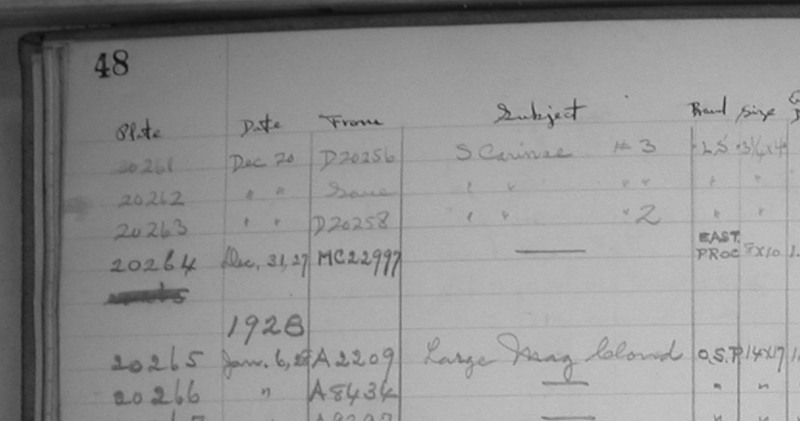 48
Plate Date From Subject Brand Size
20261 Dec 20 D20256 S Carinae # 3 L.S. 3¼x4
20262 " " Same " " " " " "
20263 " " D20258 " " " 2 " "
20264 Dec. 31, 27 MC22997 — EAST. PROC 8x10
1928
20265 Jan. 6, 28 A2209 Large Mag Cloud O.S.P. 14x17
20266 " A8434 — " "